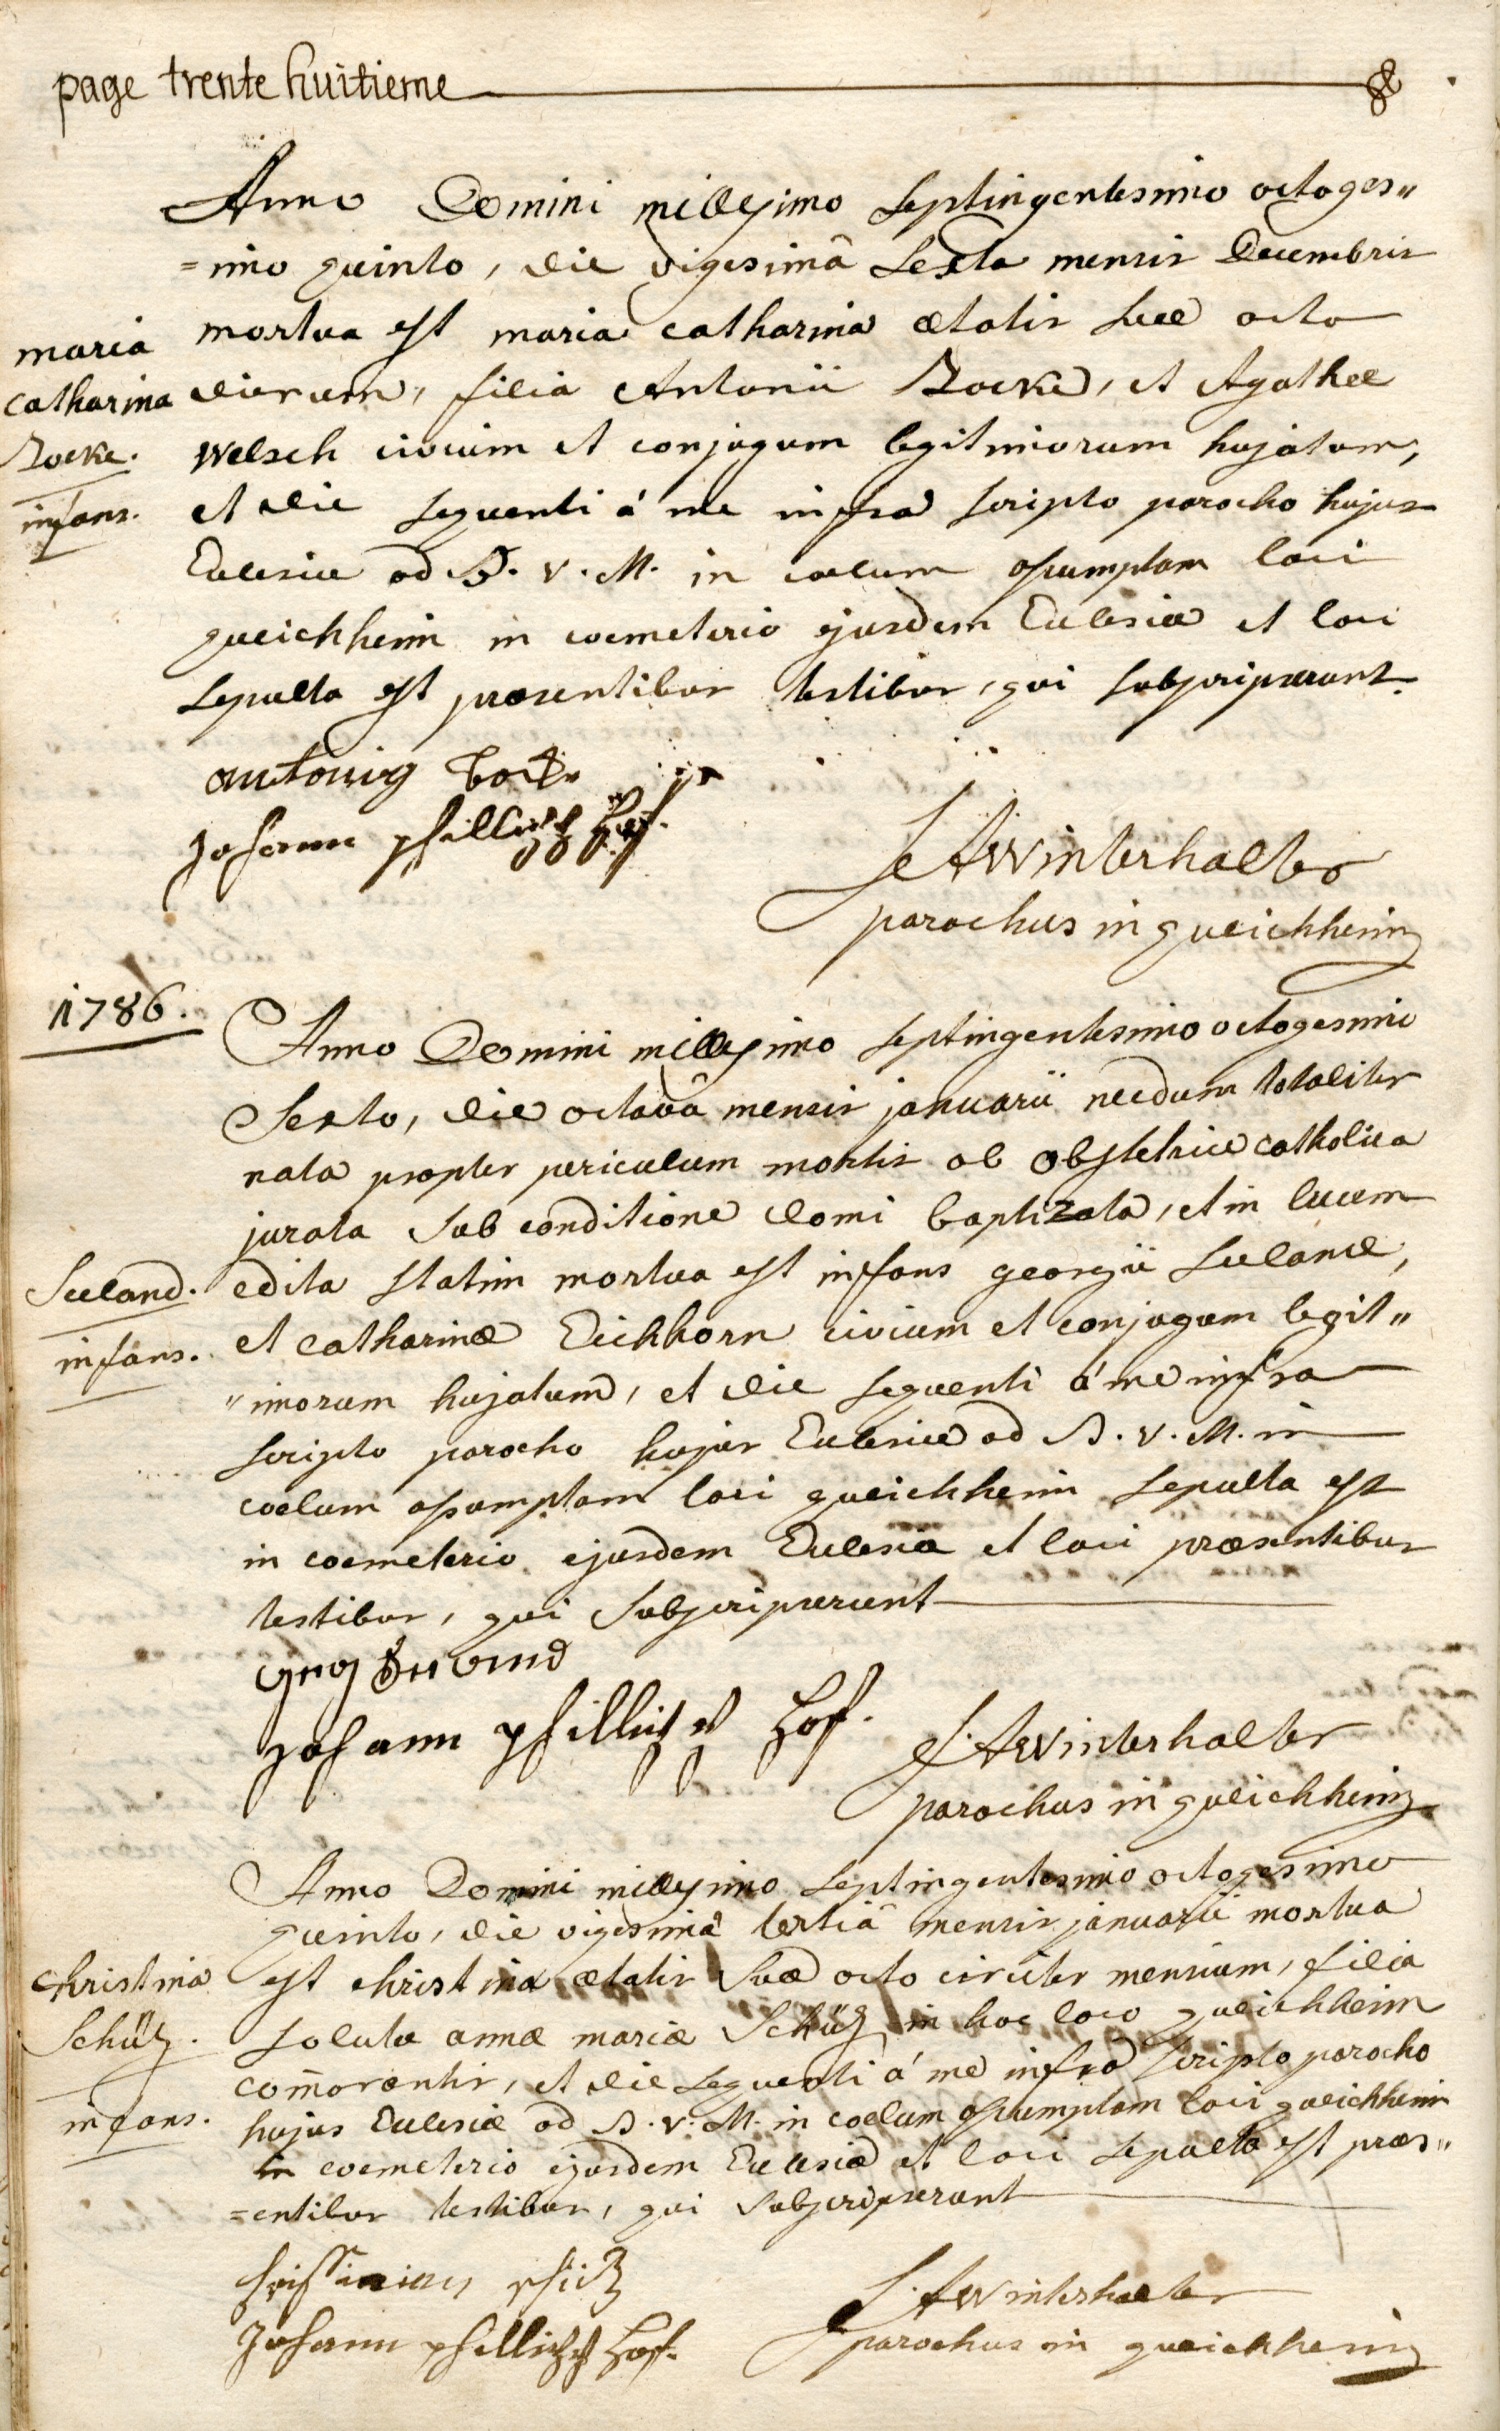 page trente huitieme
Anno Domini millesimo Septingentesimo octoges"
=imo quinto, die vigesimâ Sexta mensis Decembris
maria
mortua est maria catharina ætatis suæ octo
catharina
dierum, filia Antonii Bocke, et Agathæ
Bocke.
Welsch civium et conjugum legitimorum hujatum,
infans.
et die sequenti á me infra scripto parocho hujus
Ecclesiæ ad B. V. M. in coelum assumptam loci
gueichheim in coemeterio ejusdem Ecclesiæ et loci
Sepulta est præsentibus testibus, qui subscripserunt.
antonig
Johann phillipp Hof.
Winterhalter
parochus in gueichheim
1786.
Anno Domini millesimo septingentesimo octogesimo
Sexto, die octavâ mensis januarii necdum totaliter
nata propter periculum mortis ab obstetrice catholica
jurata sub conditione domi baptizata, et in lucem
Seeland.
edita statim mortua est infans georgii Seeland,
infans.
et catharinæ Eichhorn civium et conjugum legit"
"imorum hujatum, et die sequenti á me infra
scripto parocho hujus Ecclesiæ ad B. V. M. in
coelum assumptam loci gueichheim sepulta est
in coemeterio ejusdem Ecclesiæ et loci præsentibus
testibus, qui subscripserunt
Johann phillipp Hof.
Winterhalter
parochus in gueichheim
Anno Domini millesimo septingentesimo octogesimo
quinto, die vigesimâ tertiâ mensis januarii mortua
christina
est christina ætatis suæ octo circiter mensium, filia
Schütz.
solutæ annæ mariæ Schütz in hoc loco gueichheim
com̄orantis, et die sequenti á me infra scripto parocho
infans.
hujus Ecclesiæ ad B. V. M. in coelum assumptam loci gueichheim
in coemeterio ejusdem Ecclesiæ et loci sepulta est præs"
=entibus testibus, qui subscripserunt
Johann phillipp Hof.
Winterhalter
parochus in gueichheim